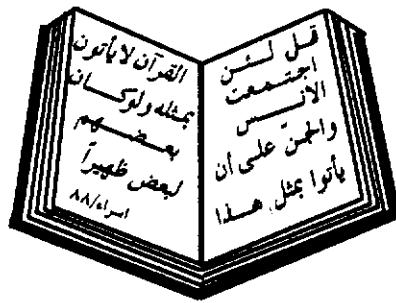 قل لـئـن
اجتـمعت
الانـس
والجنّ على أن
يأتوا بمثل هـذا
القرآن لايأتون
بمثله ولوكـان
بعـضـهم
لبعض ظهيراً
اسراء/٨٨